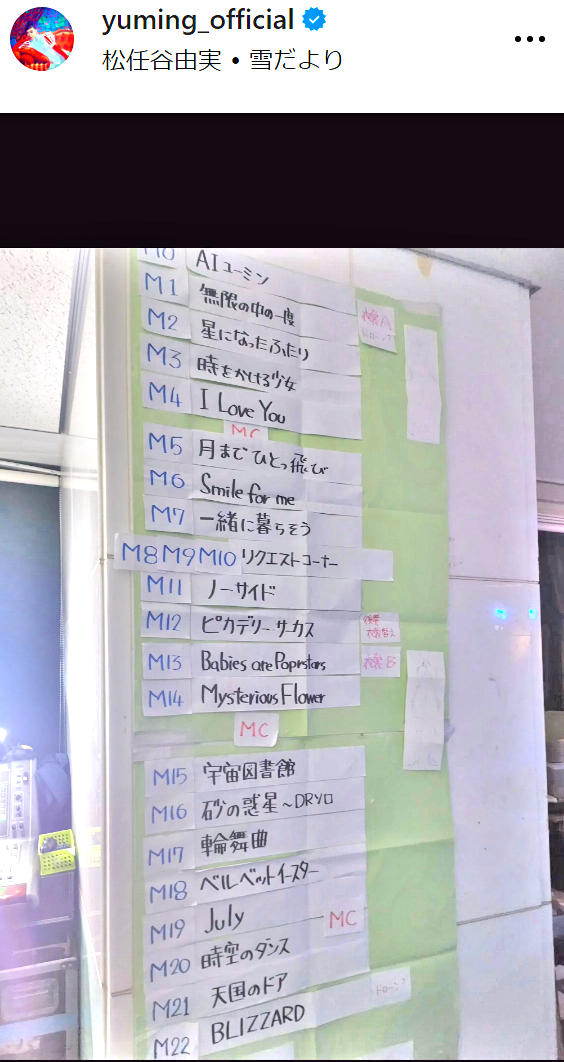 yuming_official
松任谷由実 • 雪だより
M0 AIユーミン
M1 無限の中の一度
M2 星になったふたり
M3 時をかける少女
M4 I Love You
MC
M5 月までひとっ飛び
M6 Smile for me
M7 一緒に暮らそう
M8 M9 M10 リクエストコーナー
M11 ノーサイド
M12 ピカデリーサーカス
M13 Babies are Poprstars
M14 Mysterious Flower
MC
M15 宇宙図書館
M16 砂の惑星~DRYロ
M17 輪舞曲
M18 ベルベットイースター
M19 July
MC
M20 時空のダンス
M21 天国のドア
M22 BLIZZARD